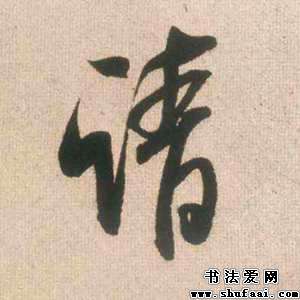 請
书法爱网
www.shufaai.com